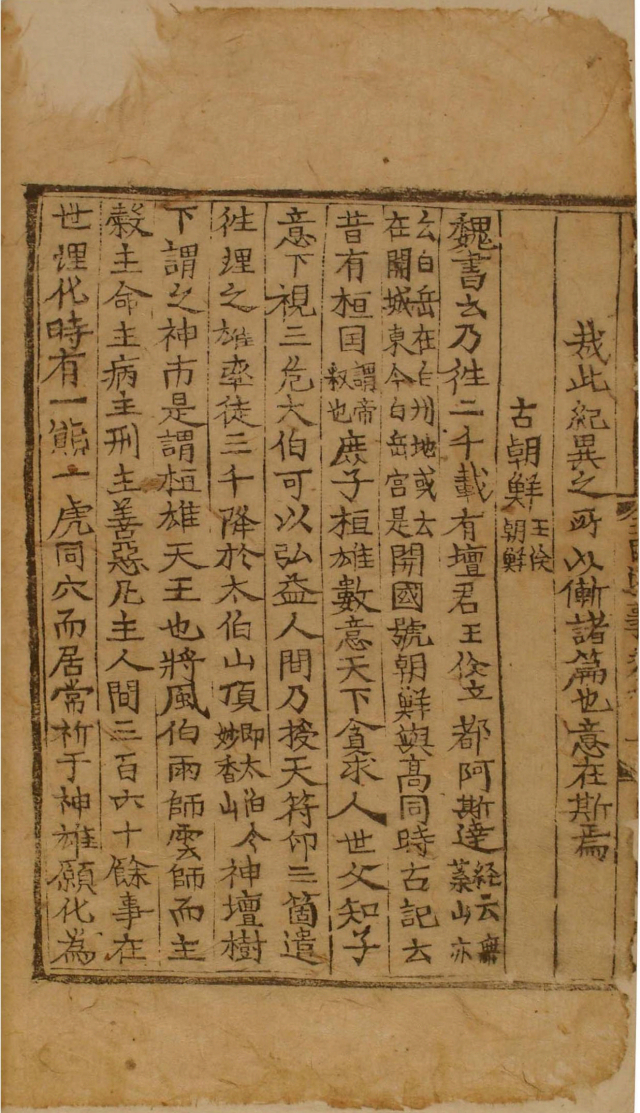 哉此紀異之所以慚諸篇也意在斯焉
古朝鮮 王倹朝鮮
魏書云乃徃二千載有壇君王倹立都阿斯達 経云無葉山亦
云白岳在白州地或云在開城東今白岳宮是 開國號朝鮮與髙同時古記云
昔有桓囯 謂帝釈也 庶子桓雄數意天下貪求人世父知子
意下視三危太伯可以弘益人間乃授天符印三箇遣
徃理之雄率徒三千降於太伯山頂 即太伯今妙香山 神壇樹
下謂之神市是謂桓雄天王也將風伯雨師雲師而主
糓主命主病主刑主善惡凡主人間三百六十餘事在
世理化時有一熊一虎同穴而居常祈于神雄願化為